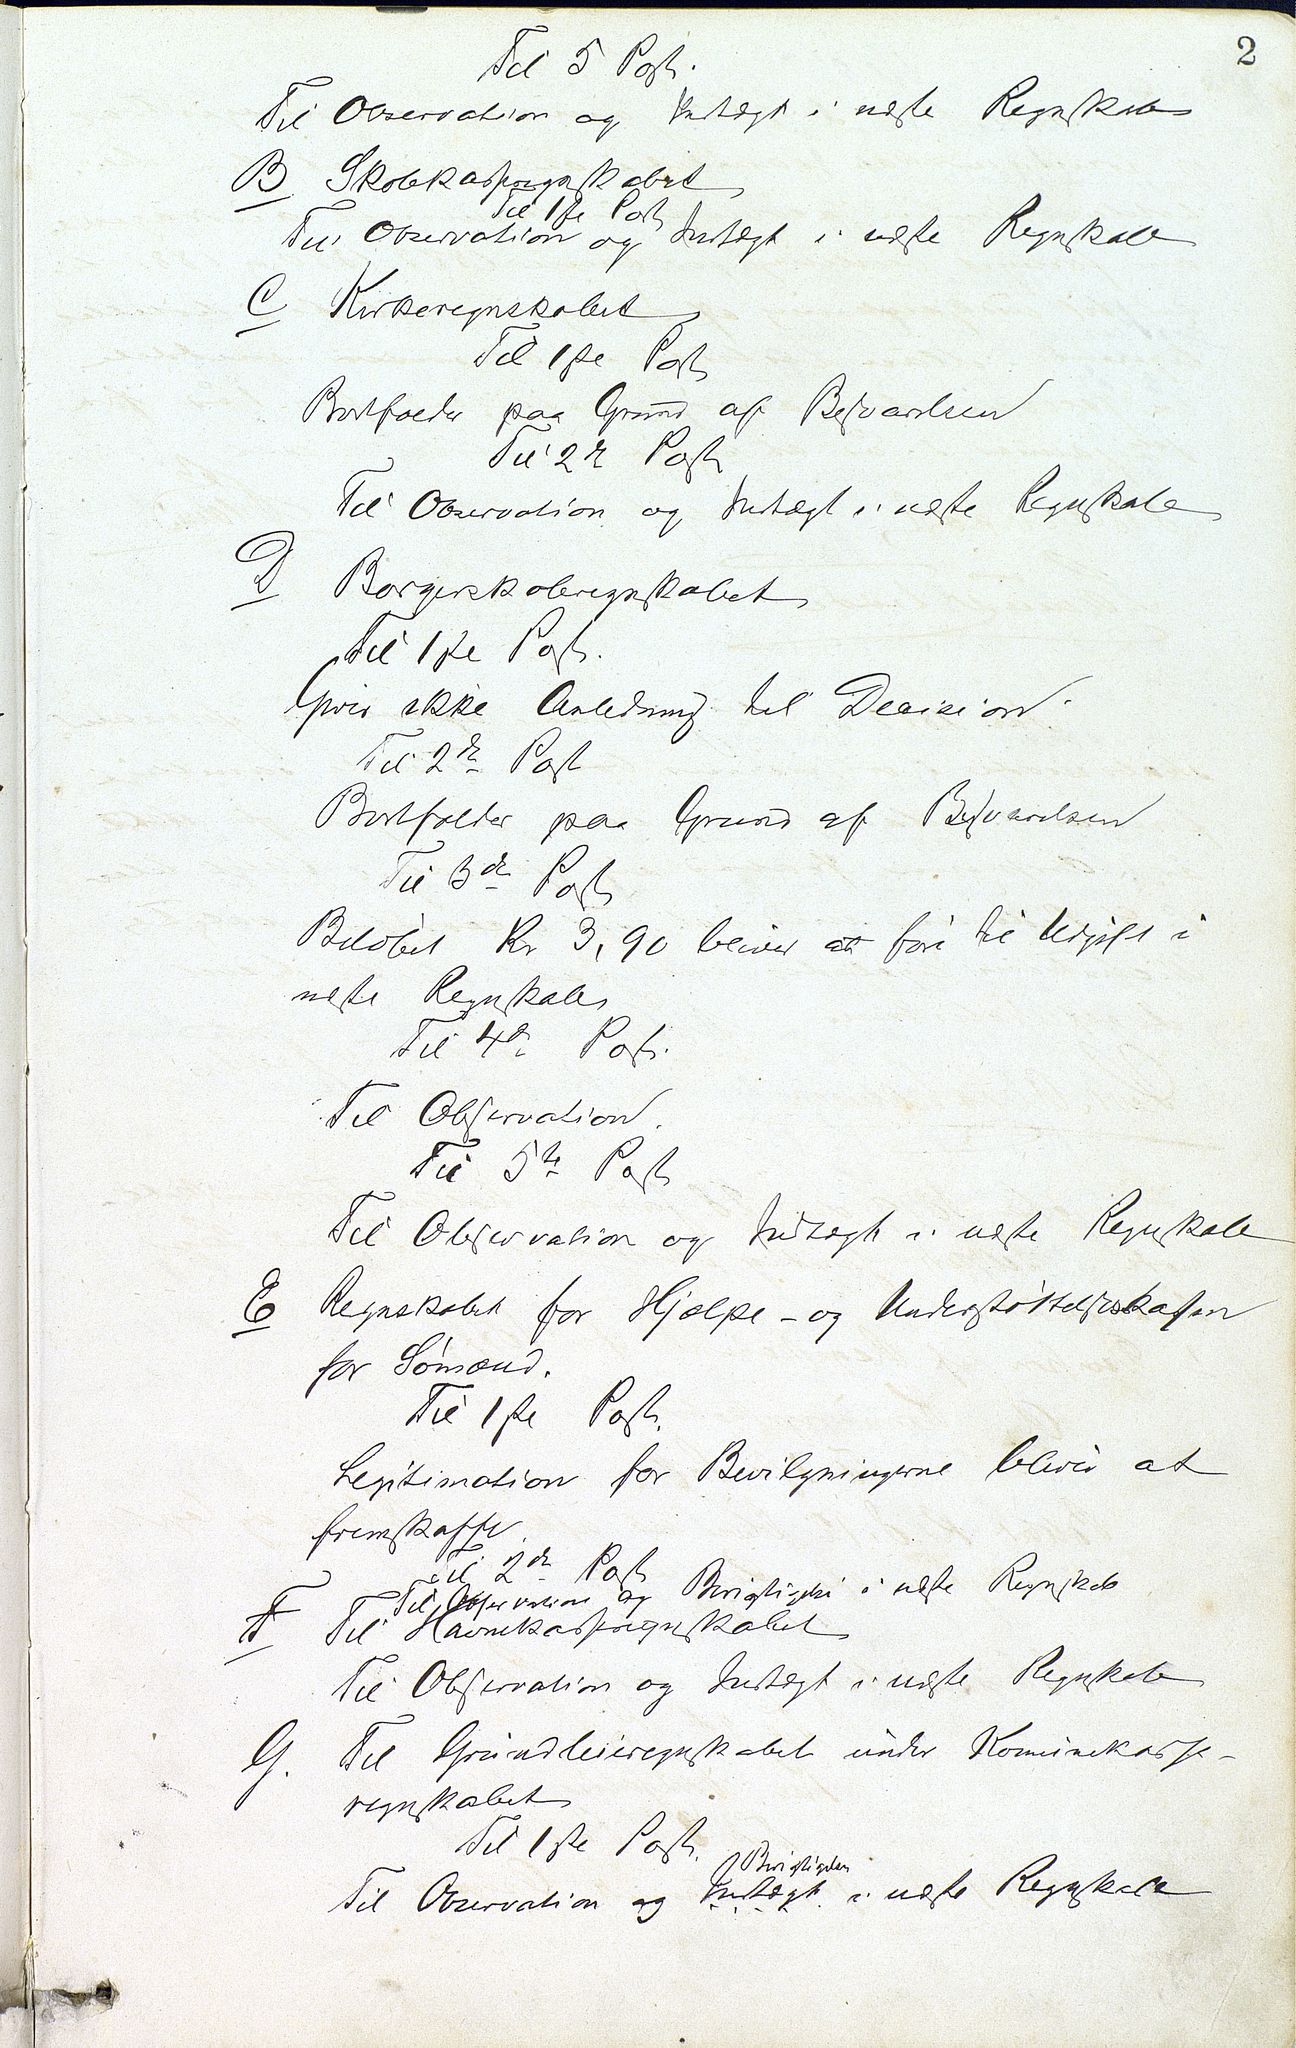 2
Til 5 Post.
Til Observation og Indtægt i næste Regnskab
B Skolekasseregnskabet
Til 1ste Post
Til Observation og Indtægt i næste Regnskab
C Kirkeregnskabet
Til 1ste Post
Bortfalder paa Grund af Besvarelsen
Til 2n Post
Til Observation og Indtægt i næste Regnskab
D Borgerskoleregnskabet
Til 1ste Post.
Giver ikke Anledning til Decision.
Til 2den Post
Bortfalder paa Grund af Besvarelsen
Til 3die Post
Beløbet Kr 3,90 bliver at føre til Udgift i
næste Regnskab
Til 4de Post.
Til Observation.
Til 5te Post
Til Observation og Indtægt i næste Regnskab
E Regnskabet for Hjælpe- og Understøttelseskassen
for Sømænd.
Til 1ste Post.
Legitimation for Bevilgningerne bliver at
fremskaffe
Til 2den Post
Til Observation og Berigtigelse i næste Regnskab
F Til Havnekasseregnskabet
Til Observation og Indtægt i næste Regnskab
G. Til Grundleieregnskabet under Komunekasse-
regnskabet
Til 1ste Post.
Berigtigelse
Til Observation og Indtægt i næste Regnskab